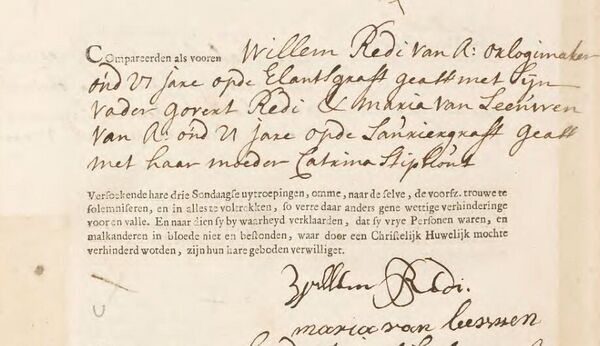 Compareerden als vooren Willem Redi van A: orlogimaker
oúd 27 jare opde Elantsgraft geatt met sijn
vader govert Redi & Maria van Leeúwen
van A: oúd 21 jare opde Laúriergraft geatt
met haar moeder Catrina Stiphoút
Versoekende hare drie Sondaagse uytroepingen, omme, naar de selve, de voorsz. trouwe te
solemniseren, en in alles te voltrekken, so verre daar anders gene wettige verhinderinge
voor en valle. En naar dien sy by waarheyd verklaarden, dat sy vrye Personen waren, en
malkanderen in bloede niet en bestonden, waar door een Christelijk Huwelijk mochte
verhinderd worden, zijn hun hare geboden verwilliget.
Willem Redi.
maria van leeuwen